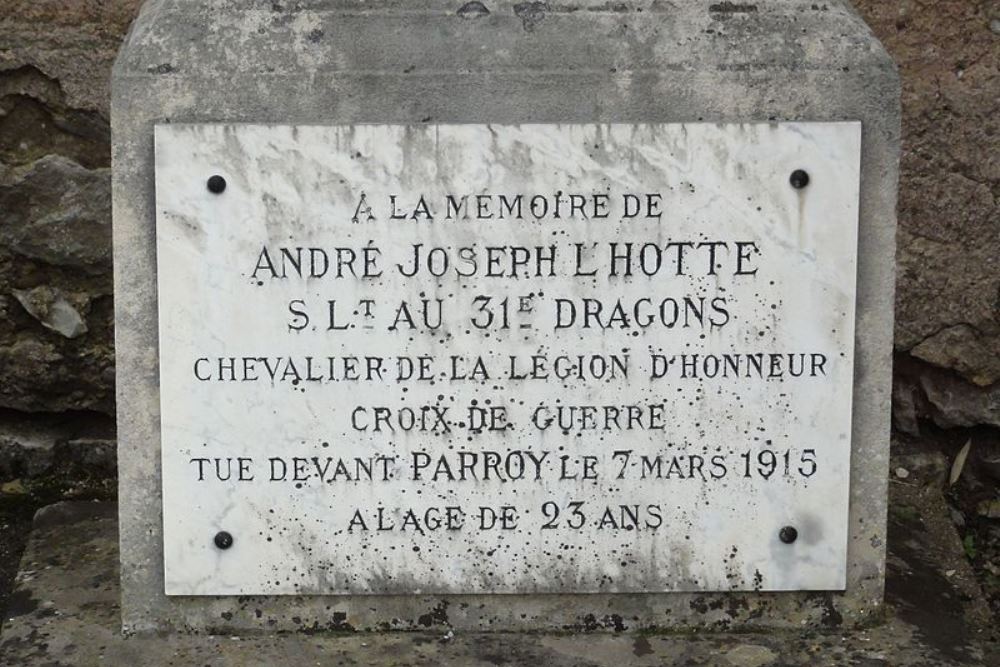 A LA MEMOIRE DE
ANDRÉ JOSEPH L'HOTTE
S. LT AU 31E DRAGONS
CHEVALIER DE LA LÉGION D'HONNEUR
CROIX DE GUERRE
TUE DEVANT PARROY LE 7 MARS 1915
A LAGE DE 23 ANS